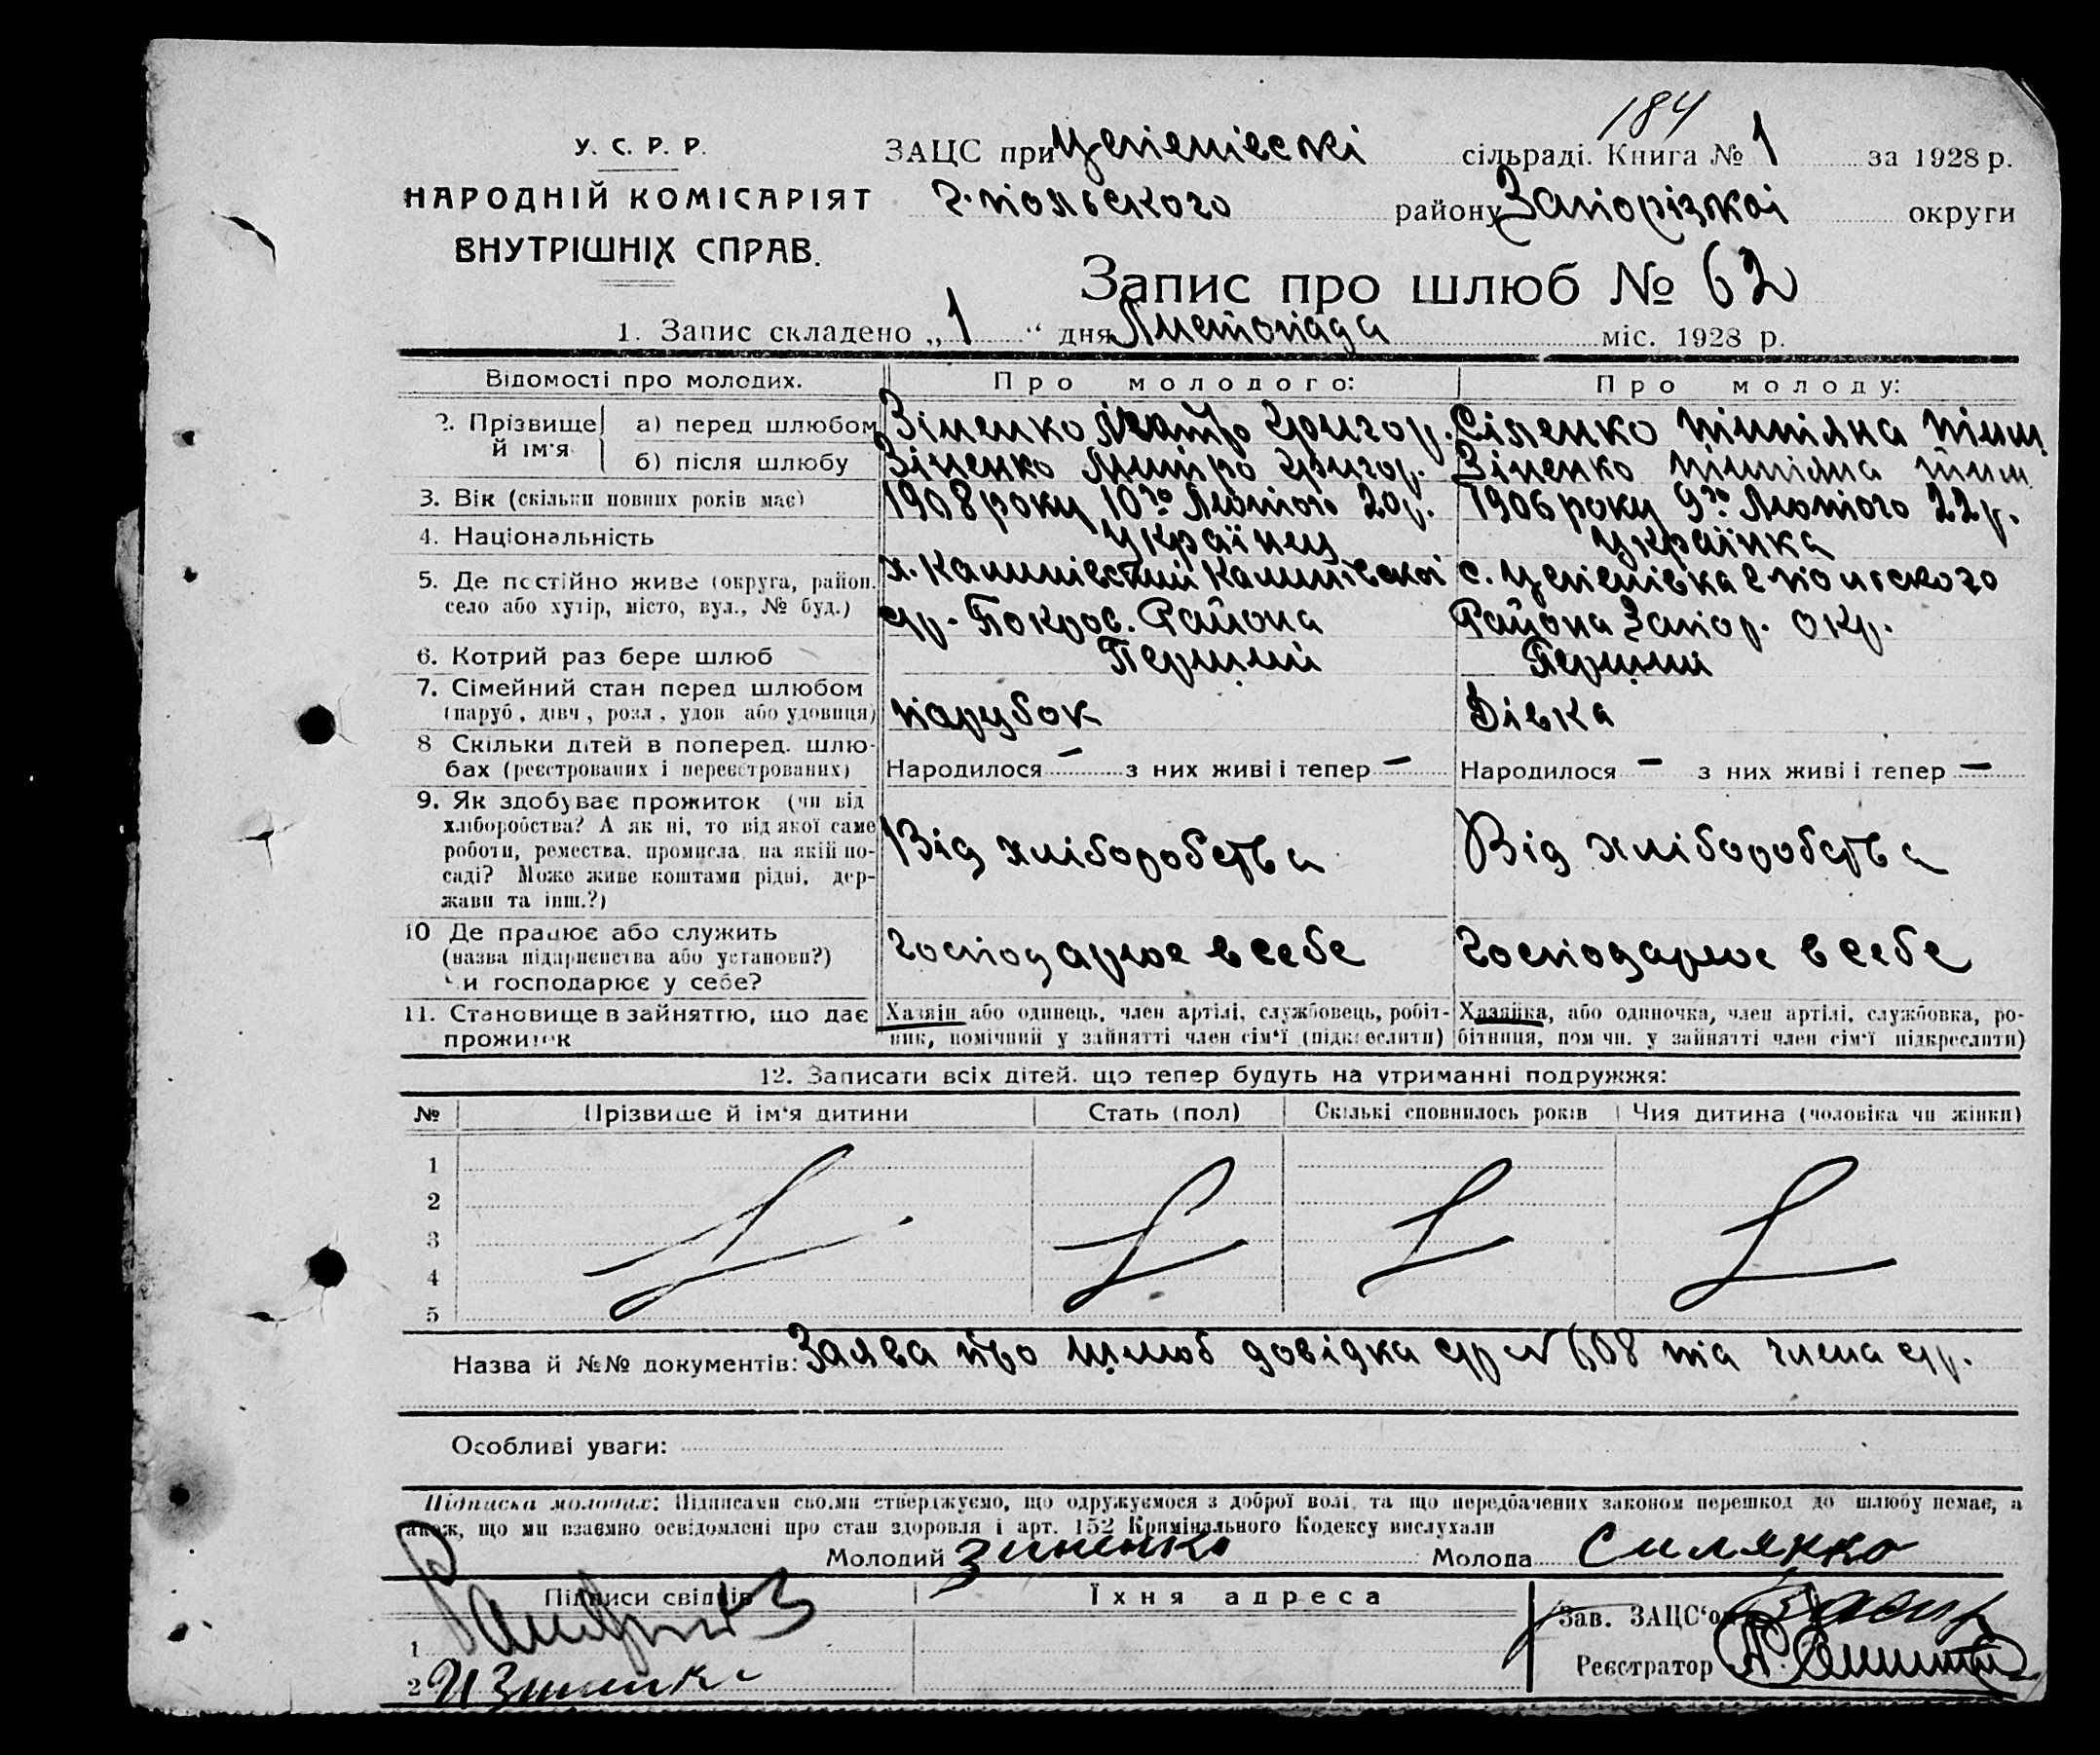 184
У. С. Р. Р.
НАРОДНІЙ КОМІСАРІЯТ
ВНУТРІШНІХ СПРАВ.
ЗАЦС при сільраді. Книга № 1 за 1928 р.
г.польського району Запорізкоі округи
Запис про шлюб № 62
1. Запис складено „ 1 “ дня Листопада міс. 1928 р.
Відомості про молодих. Про молодого: Про молоду:
2. Прізвище й ім'я а) перед шлюбом Зіненко Григор.
б) після шлюбу Зіненко Дмитро Григор. Зіненко
3. Вік (скільки повних років має) 1908 року 10го Лютого 20 р. 1906 року 9го Лютого 22 р.
4. Національність Українец Українка
5. Де постійно живе (округа, район, село або хутір, місто, вул., № буд.)
ср. Покров. Района Района Запор. окр.
6. Котрий раз бере шлюб Перший Перший
7. Сімейний стан перед шлюбом парубок Дівка
(паруб., дівч., розл., удов. або удовиця)
8 Скільки дітей в поперед. шлюбах (реєстрованих і нереєстрованих) Народилося – з них живі і тепер – Народилося – з них живі і тепер –
9. Як здобуває прожиток (чи від
хліборобства? А як ні, то від якої саме
роботи, ремества, промисла, на якій по-
саді? Може живе коштами рідні, дер-
жави та інш.?)
Від хліборобства Від хліборобства
10 Де працює або служить
(назва підприємства або установи?)
Чи господарює у себе?
Господарює в себе Господарює в себе
11. Становище в зайняттю, що дає
прожиток
Хазяїн або одинець, член артілі, службовець, робіт-
ник, помічний у зайнятті член сім'ї (підкреслити)
Хазяйка, або одиночка, член артілі, службовка, ро-
бітниця, помічн. у зайнятті член сім'ї підкреслити)
12. Записати всіх дітей, що тепер будуть на утриманні подружжя:
№ Прізвище й ім'я дитини Стать (пол) Скількі сповнилось років Чия дитина (чоловіка чи жінки)
1
2
3
4
5
Назва й №№ документів: Заява про шлюб довідка ср № 608 та члена ср.
Особливі уваги:
Підписка молодих: Підписами своїми стверджуємо, що одружуємося з доброї волі, та що передбачених законом перешкод до шлюбу немає, а
також, що ми взаємно освідомлені про стан здоровля і арт. 152 Кримінального Кодексу вислухали
Молодий Зиненко Молода Силянко
Підписи свідків Їхня адреса
Зав. ЗАЦС'ом
1
Реєстратор
2